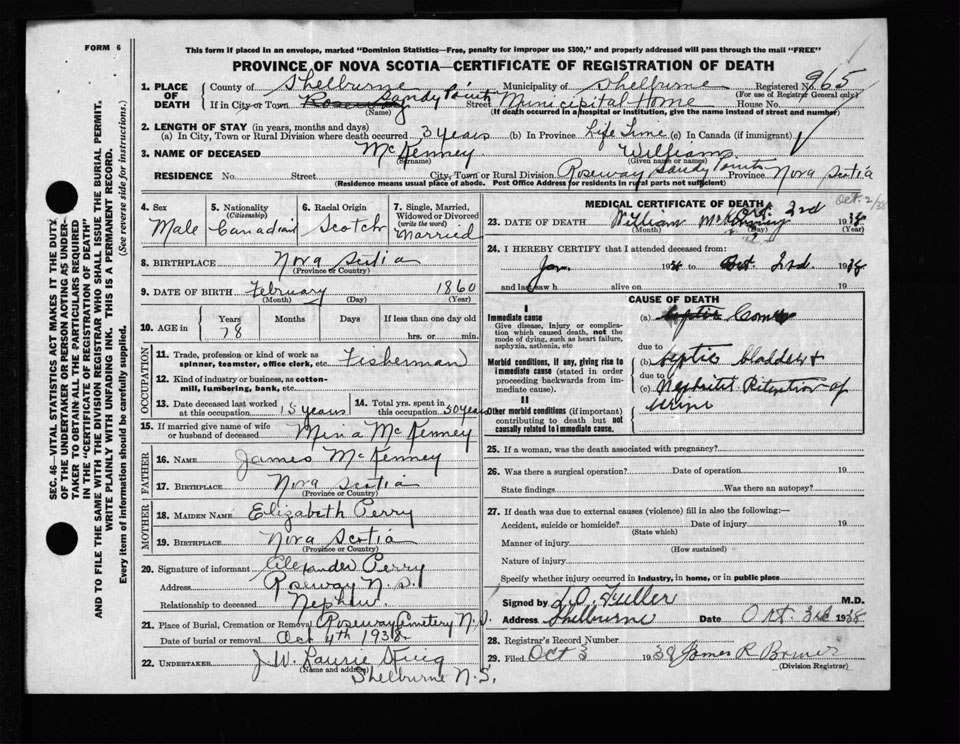 FORM 6
This form if placed in an envelope, marked "Dominion Statistics—Free, penalty for improper use $300," and properly addressed will pass through the mail "FREE"
PROVINCE OF NOVA SCOTIA—CERTIFICATE OF REGISTRATION OF DEATH
SEC. 46—VITAL STATISTICS ACT MAKES IT THE DUTY
OF THE UNDERTAKER OR PERSON ACTING AS UNDER-
TAKER TO OBTAIN ALL THE PARTICULARS REQUIRED
IN THE "CERTIFICATE OF REGISTRATION OF DEATH"
AND TO FILE THE SAME WITH THE DIVISION REGISTRAR WHO SHALL ISSUE THE BURIAL PERMIT.
WRITE PLAINLY WITH UNFADING INK. THIS IS A PERMANENT RECORD.
Every item of information should be carefully supplied. (See reverse side for instructions.)
1. PLACE OF DEATH County of Shelburne Municipality of Shelburne Registered No. 965
(For use of Registrar General only)
If in City or Town Roseway Sandy Point Street Municipital Home House No.
(Name) (If death occurred in a hospital or institution, give the name instead of street and number)
2. LENGTH OF STAY (in years, months and days)
(a) In City, Town or Rural Division where death occurred 3 years (b) In Province Life Time (c) In Canada (if immigrant)
3. NAME OF DECEASED McKenney William
(Surname) (Given name or names)
RESIDENCE No. Street City, Town or Rural Division Roseway Sandy Point Province Nova Scotia
(Residence means usual place of abode. Post Office Address for residents in rural parts not sufficient)
4. Sex Male
5. Nationality (Citizenship) Canadian
6. Racial Origin Scotch
7. Single, Married, Widowed or Divorced (write the word) Married
8. BIRTHPLACE Nova Scotia
(Province or Country)
9. DATE OF BIRTH February 1860
(Month) (Day) (Year)
10. AGE in Years 78 Months Days If less than one day old
hrs. or min.
OCCUPATION
11. Trade, profession or kind of work as spinner, teamster, office clerk, etc. Fisherman
12. Kind of industry or business, as cotton-mill, lumbering, bank, etc.
13. Date deceased last worked at this occupation 15 years
14. Total yrs. spent in this occupation 50 years
15. If married give name of wife or husband of deceased Mina McKenney
FATHER
16. NAME James McKenney
17. BIRTHPLACE Nova Scotia
(Province or Country)
MOTHER
18. MAIDEN NAME Elizabeth Perry
19. BIRTHPLACE Nova Scotia
(Province or Country)
20. Signature of informant Alexander Perry
Address Roseway N.S.
Relationship to deceased Nephew.
21. Place of Burial, Cremation or Removal Roseway Cemetery N.S.
Date of burial or removal Oct 4th 1938
22. UNDERTAKER J.W. Laurie
(Name and address)
Shelburne N.S.
MEDICAL CERTIFICATE OF DEATH Oct. 2/38
23. DATE OF DEATH William Oct. 2nd 1938
(Month) (Day) (Year)
24. I HEREBY CERTIFY that I attended deceased from:
Jan. 19 to Oct 2nd. 1938
and last saw h alive on 19
CAUSE OF DEATH
I
Immediate cause
Give disease, injury or complication which caused death, not the mode of dying, such as heart failure, asphyxia, asthenia, etc
(a) Septic Coma
due to
Morbid conditions, if any, giving rise to immediate cause (stated in order proceeding backwards from immediate cause).
(b) Septic bladder &
due to
(c) Nephritis Retention of
urine
II
Other morbid conditions (if important) contributing to death but not causally related to immediate cause.
25. If a woman, was the death associated with pregnancy?
26. Was there a surgical operation? Date of operation 19
State findings Was there an autopsy?
27. If death was due to external causes (violence) fill in also the following:—
Accident, suicide or homicide? Date of injury 19
(State which)
Manner of injury
(How sustained)
Nature of injury
Specify whether injury occurred in industry, in home, or in public place
Signed by L.O. Fuller M.D.
Address Shelburne Date Oct. 3rd 1938
28. Registrar's Record Number
29. Filed Oct 3 1938 James R Bower
(Division Registrar)